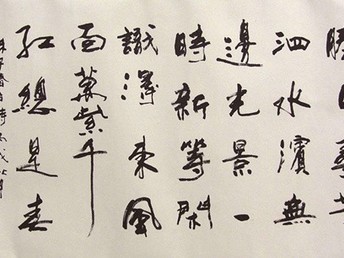 勝日尋芳
泗水濱無
邊光景一
時新等閒
識得東風
面萬紫千
紅總是春
朱子春日詩